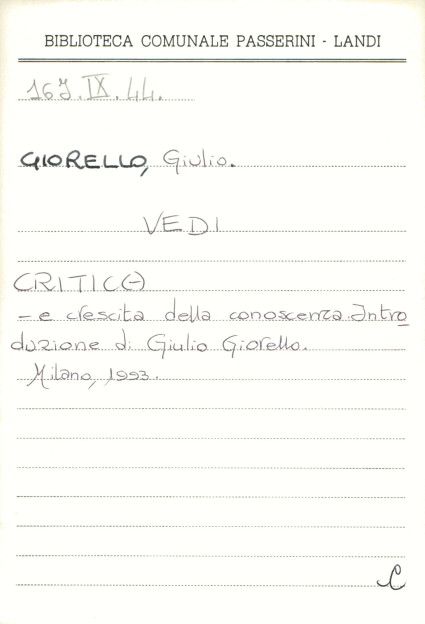 BIBLIOTECA COMUNALE PASSERINI - LANDI
16J.IX.44.
GIORELLO, Giulio.
VEDI
CRITICA
- e crescita della conoscenza. Intro
duzione di Giulio Giorello.
Milano, 1993.
C